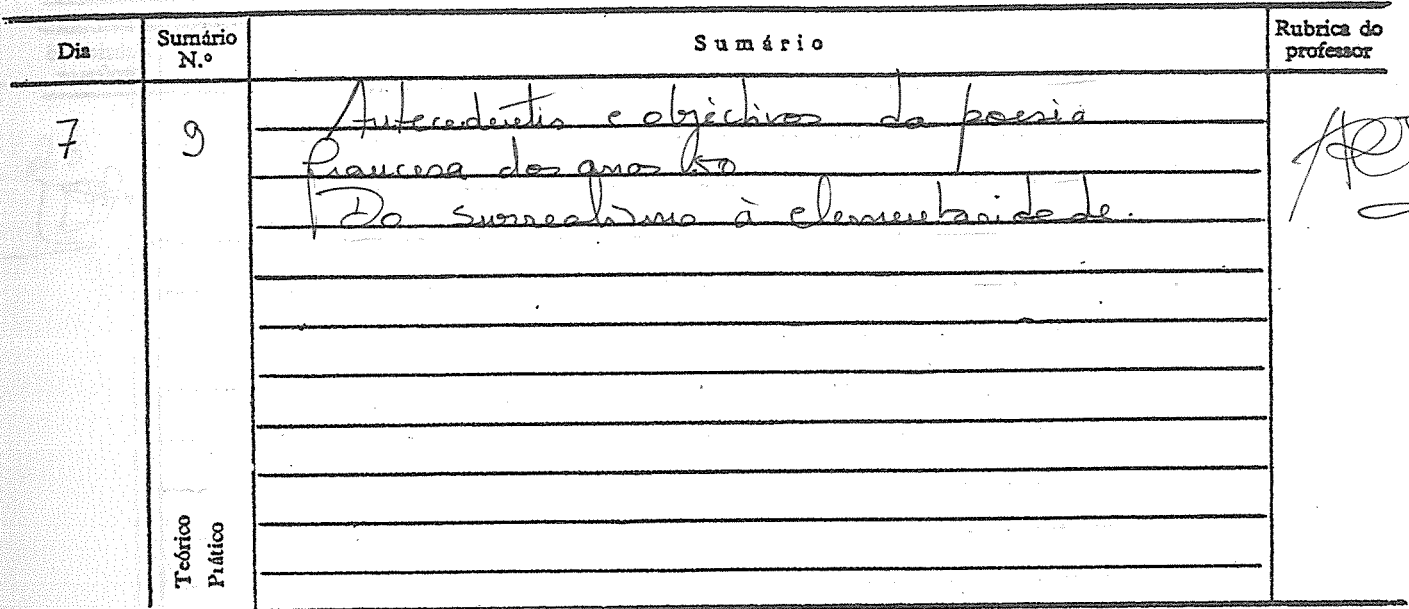 Dia
Sumário N.º
Sumário
Rubrica do professor
7
9
Antecedentes e objectivos da poesia
francesa dos anos 50
Do surrealismo à elementaridade.
Teórico
Prático